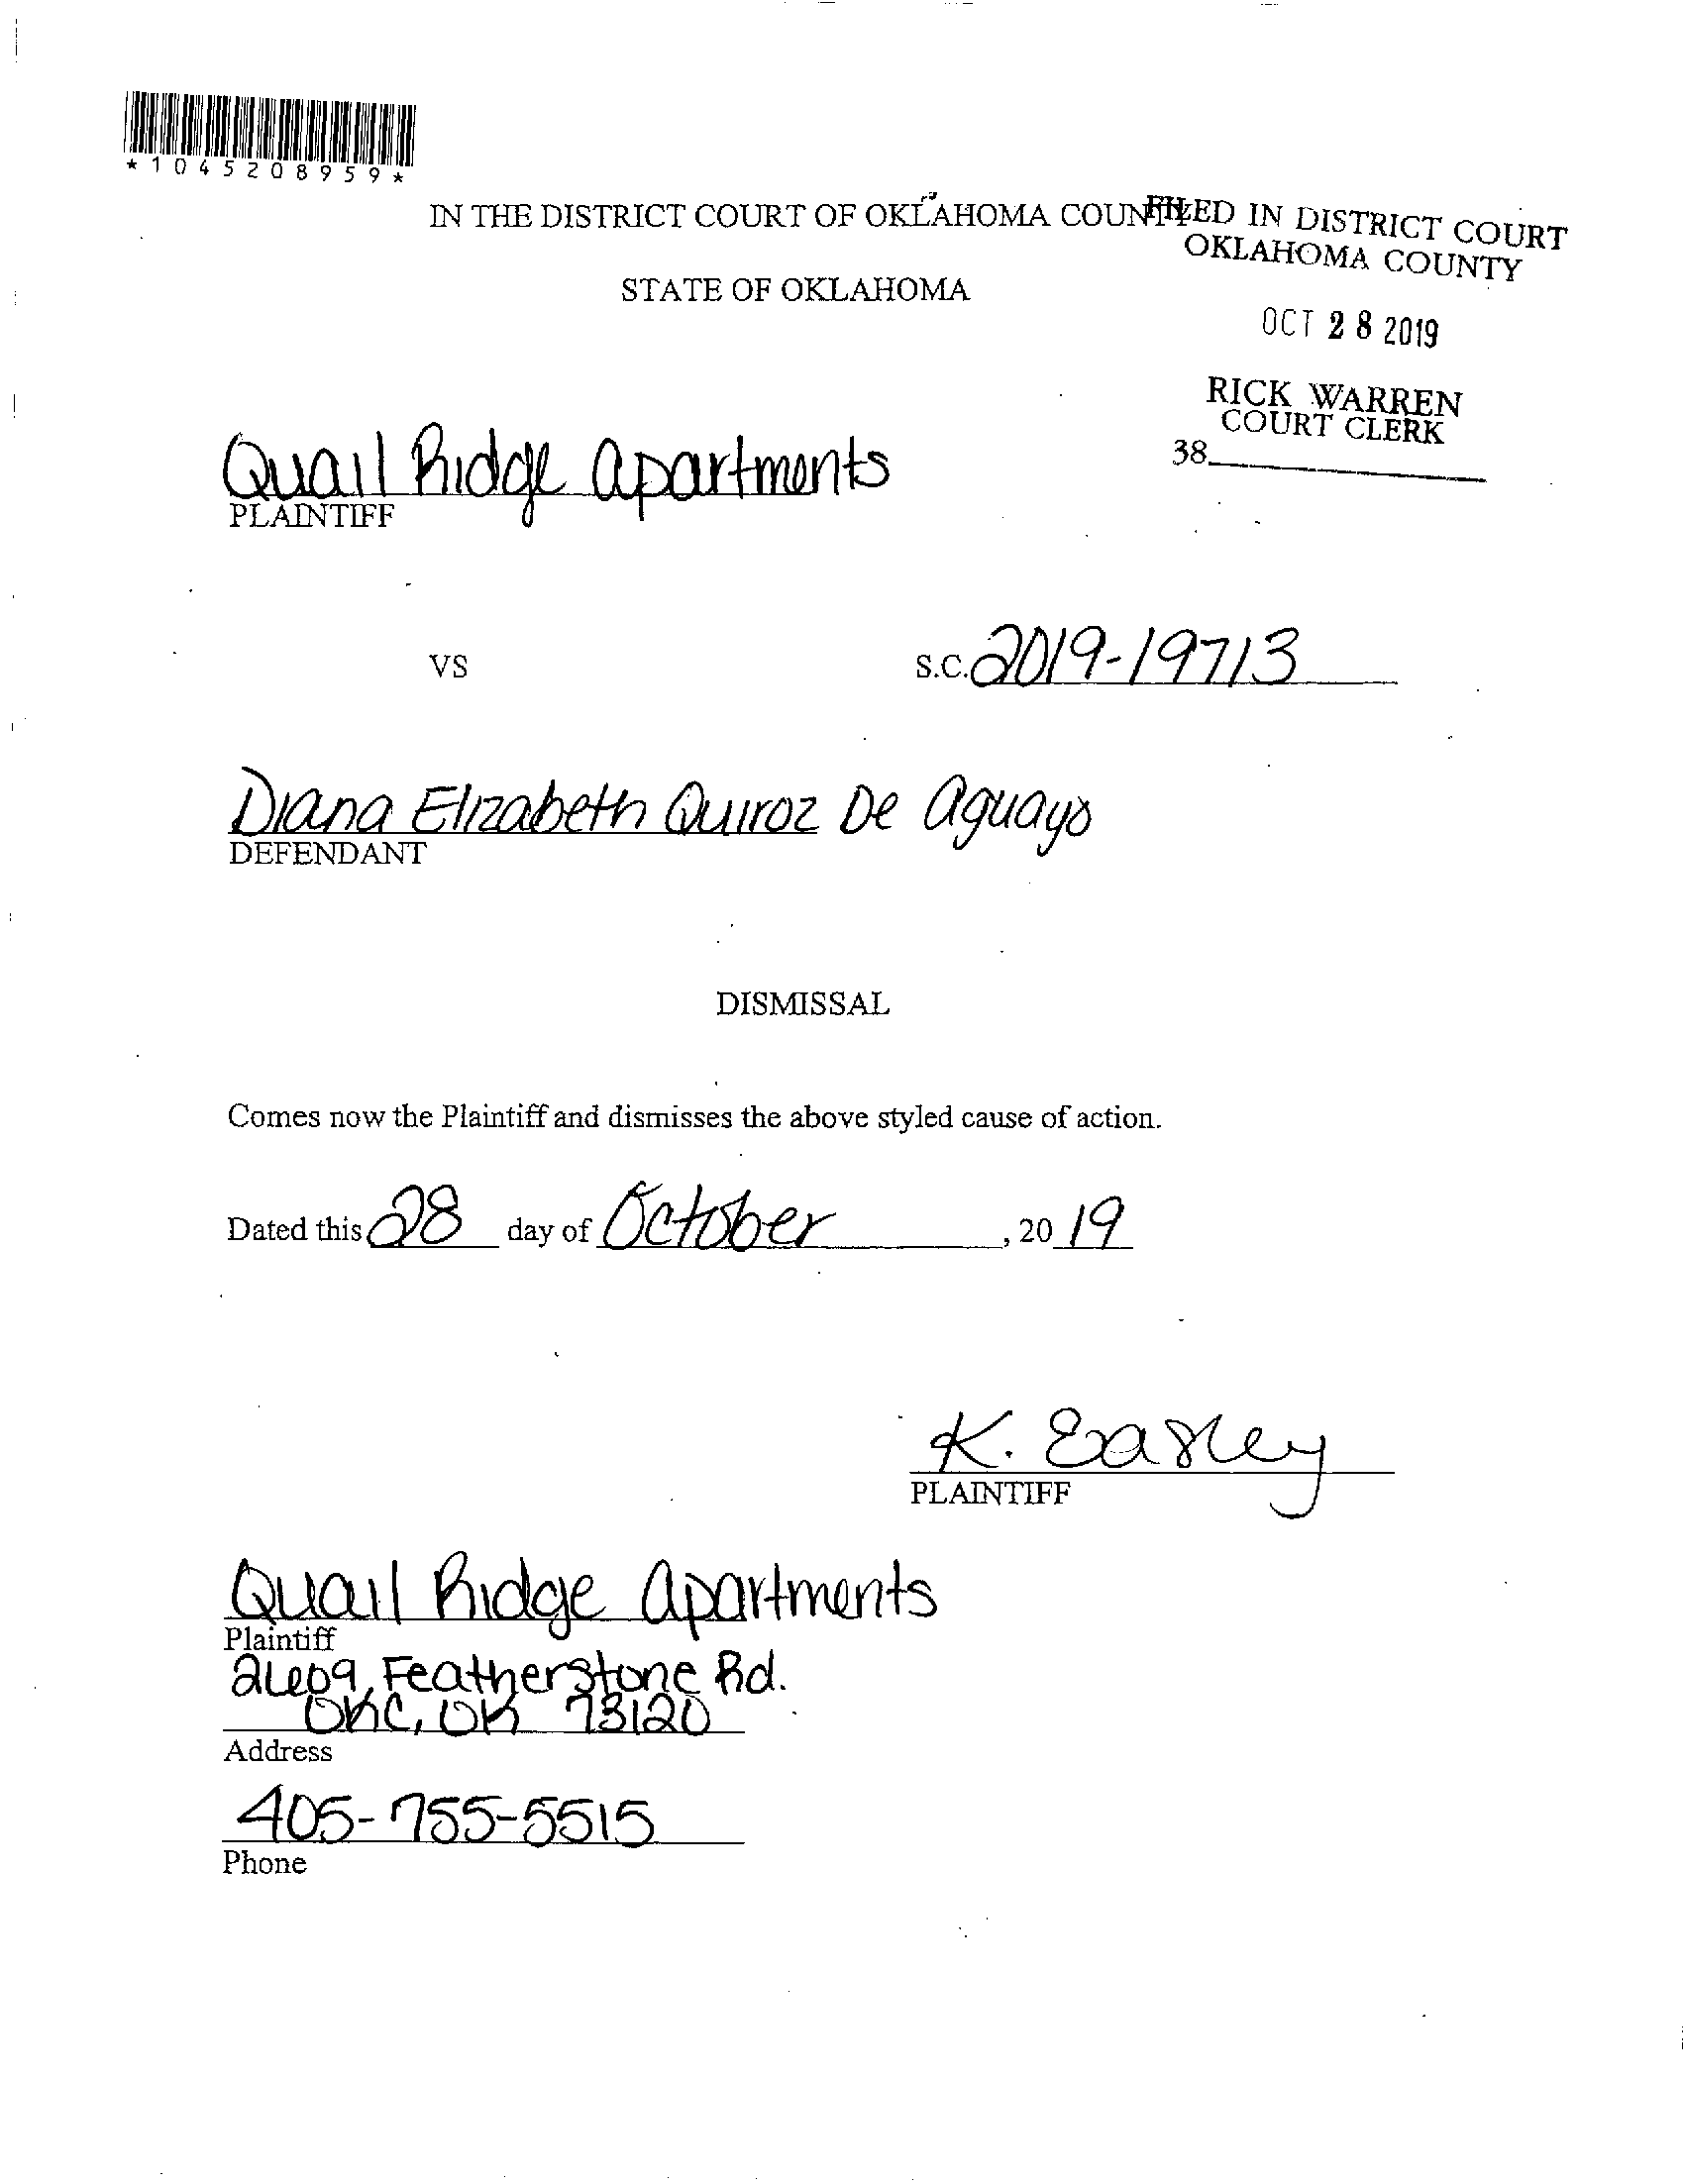 *1045208959*
IN THE DISTRICT COURT OF OKLAHOMA COUNTY
FILED IN DISTRICT COURT
OKLAHOMA COUNTY
STATE OF OKLAHOMA
OCT 28 2019
RICK WARREN
COURT CLERK
38
Quail Ridge Apartments
PLAINTIFF
VS
S.C. 2019-19713
Diana Elizabeth Quiroz De Aguayo
DEFENDANT
DISMISSAL
Comes now the Plaintiff and dismisses the above styled cause of action.
Dated this 28 day of October, 20 19
K. Easley
PLAINTIFF
Quail Ridge Apartments
Plaintiff
2609 Featherstone Rd.
OKC, OK 73120
Address
405-755-5515
Phone